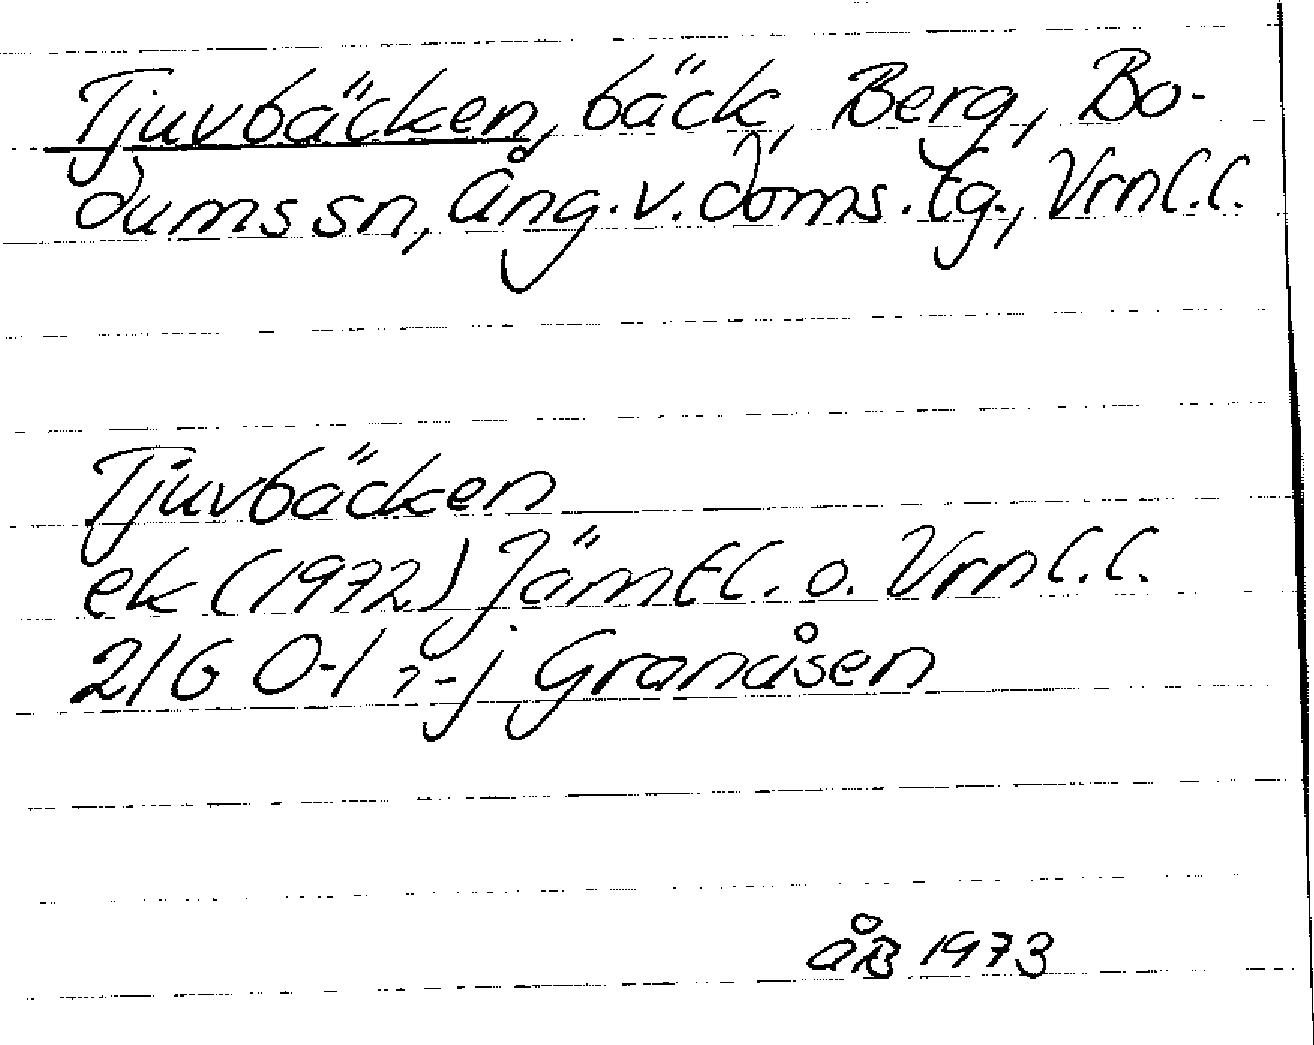 Tjuvbäcken, bäck, Berg, Bo-
dums sn, Ång. v. doms. tg., Vrnl.l.
Tjuvbäcken
ek (1972) Jämtl. o. Vrnl.l.
21G 0-1 i-j Granåsen
åB 1973